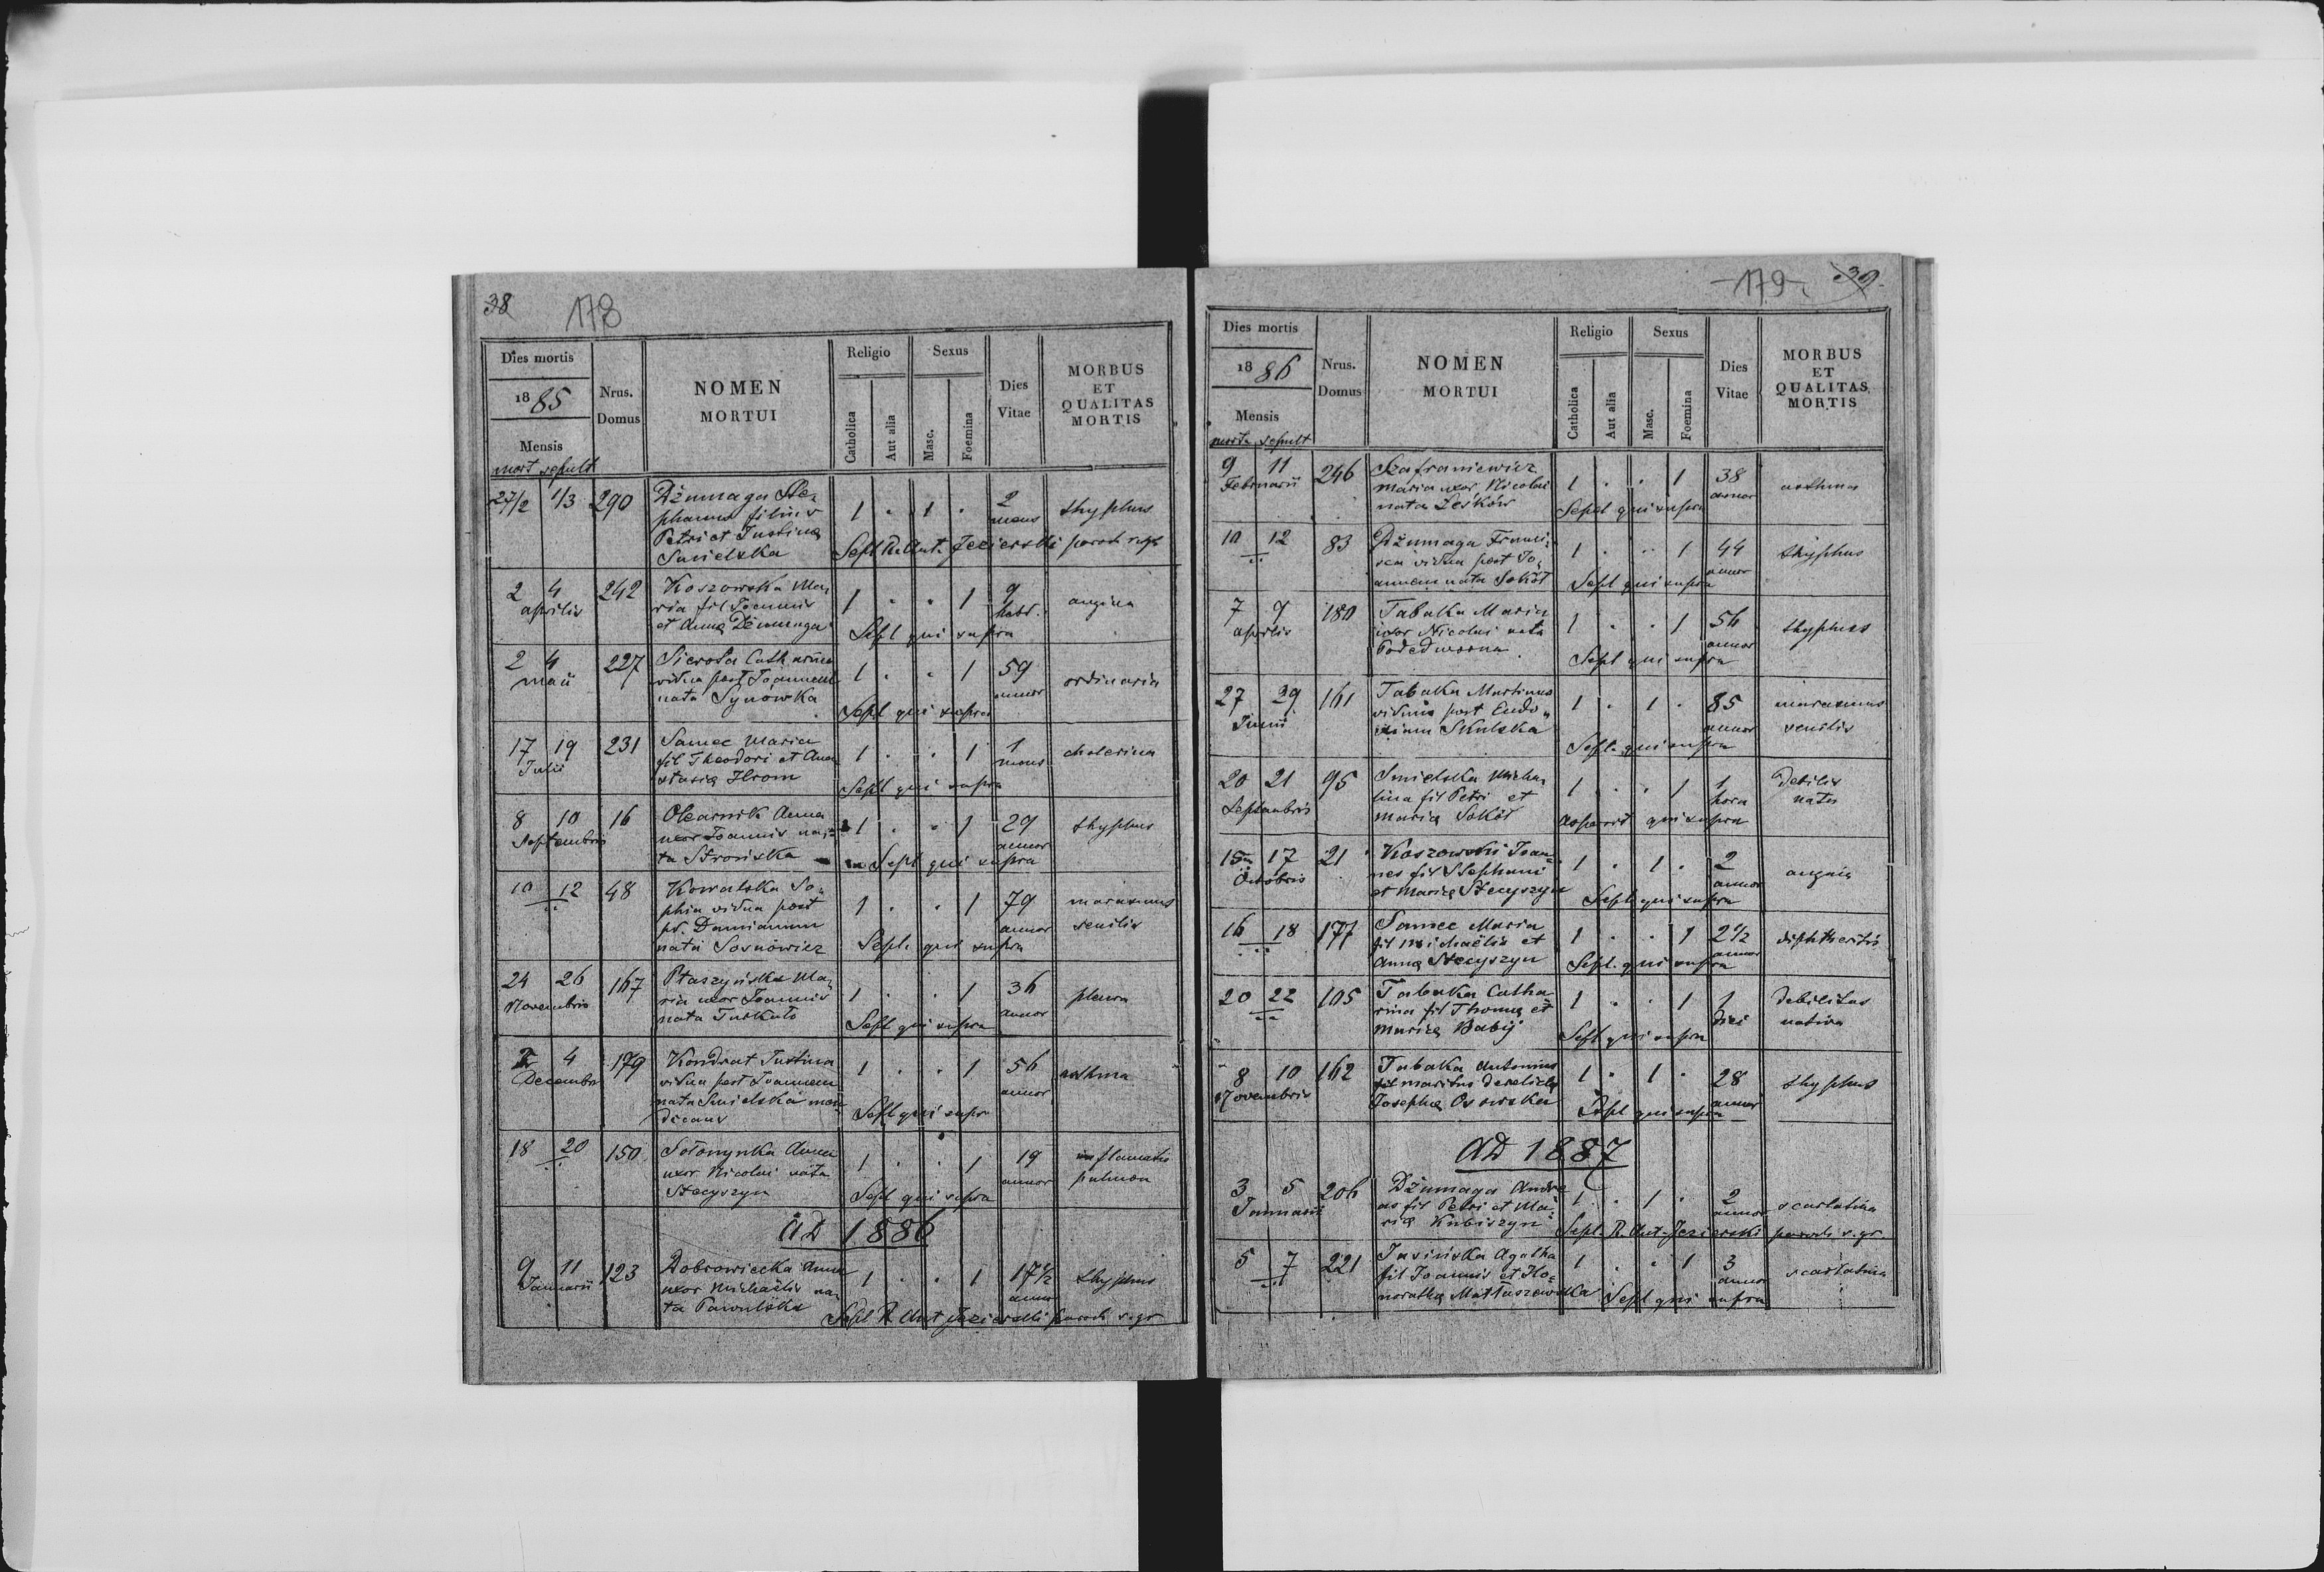 38 178
Dies mortis
1885
Mensis
mort sepult
Nrus. Domus
NOMEN MORTUI
Religio
Catholica
Aut alia
Sexus
Masc.
Foemina
Dies Vitae
MORBUS ET QUALITAS MORTIS
27/2 1/3 290 Dżumaga Ste- 1 . 1 . 2 thyphus
phanus filius mens
Petri et Justinę
Smielska Sepl R. Ant. Jezierski paroch r. gr
2 4 242 Koszowska Ma- 1 . . 1 9 angina
aprilis ria fil Joannis hebd.
et Annę Dżumaga Sepl qui supra
2 4 227 Sierota Catharina 1 . . 1 59 ordinaria
maii vidua post Joannem annor
nata Synówka Sepl qui supra
17 19 231 Samec Maria 1 . . 1 1 cholerina
Julii fil Theodori et Ana- mens
stasię Hrom Sepl qui supra
8 10 16 Olearnik Anna 1 . . 1 29 thyphus
Septembris uxor Joannis na- annor
ta Strońska Sepl qui supra
10 12 48 Kowalska So- 1 . . 1 79 marasmus
phia vidua post annor senilis
pr. Damianum
nata Sosnówicz Sepl. qui supra
24 26 167 Ptaszyńska Ma- 1 . . 1 36 pleura
Novembris ria uxor Joannis annor
nata Sepl qui supra
2 4 179 Kondrat Justina 1 . . 1 56 asthma
Decembr vidua post Joannem annor
nata Smielska men-
dicans Sepl qui supr
18 20 150 Sołonynka Anna 1 . . 1 19 inflamatio
uxor Nicolai nata annor pulmon
Stecyszyn Sepl qui supra
AD 1886
9 11 123 Dobrowiecka Anna 1 . . 1 17 1/2 thyphus
Januarii uxor Michaëlis na- annor
ta Pawulska Sepl R Ant Jezierski paroch r. gr
-179- 39
Dies mortis
1886
Mensis
mort. sepult
Nrus. Domus
NOMEN MORTUI
Religio
Catholica
Aut alia
Sexus
Masc.
Foemina
Dies Vitae
MORBUS ET QUALITAS MORTIS
9 11 246 Szafraniewicz 1 . . 1 38 asthma
Februarii Maria uxor Nicolai annor
nata Leśków Sepel qui supra
10 12 83 Dżumaga Franci- 1 . . 1 44 thyphus
sca vidua post Jo- annor
annem nata Sokół Sepl qui supra
7 9 180 Tabaka Maria 1 . . 1 56 thyphus
aprilis uxor Nicolai nata annor
Podedworna Sepl qui supra
27 29 161 Tabaka Martinus 1 . 1 . 85 marasmus
Junii viduus post Eudo- annor senilis
xiam Skulska Sepl. qui supra
20 21 95 Smielska Micha- 1 . . 1 1 Debilis
Septembris lina fil Petri et hora nata
Maria Sokół qui supra
15 17 21 Koszowski Joan- 1 . 1 . 2 angina
Octobris nes fil Stephani annor
et Marię Stecyszyn Sepl qui supra
16 18 177 Samec Maria 1 . . 1 2 1/2 diphtheritis
fil Michaëlis et annor
Annę Stecyszyn Sepl. qui supra
20 22 105 Tabaka Catha- 1 . . 1 1 Debilitas
rina fil Thomę et diei nativa
Marię Babij Sepl qui supra
8 10 162 Tabaka Antonius 1 . 1 . 28 thyphus
Novembris fil maritus derelictę annor
Josephę Osowska Sepl qui supra
AD 1887
3 5 206 Dżumaga Andre- 1 . 1 . 2 scarlatina
Januarii as fil Petri et Ma- annor
rię Kubiszyn Sepl. R. Ant. Jezierski paroch r. gr
5 7 221 Jasińska Agatha 1 . . 1 3 scarlatina
fil Joannis et Ho- annor
noratę Matłaszewska Sepl qui supra